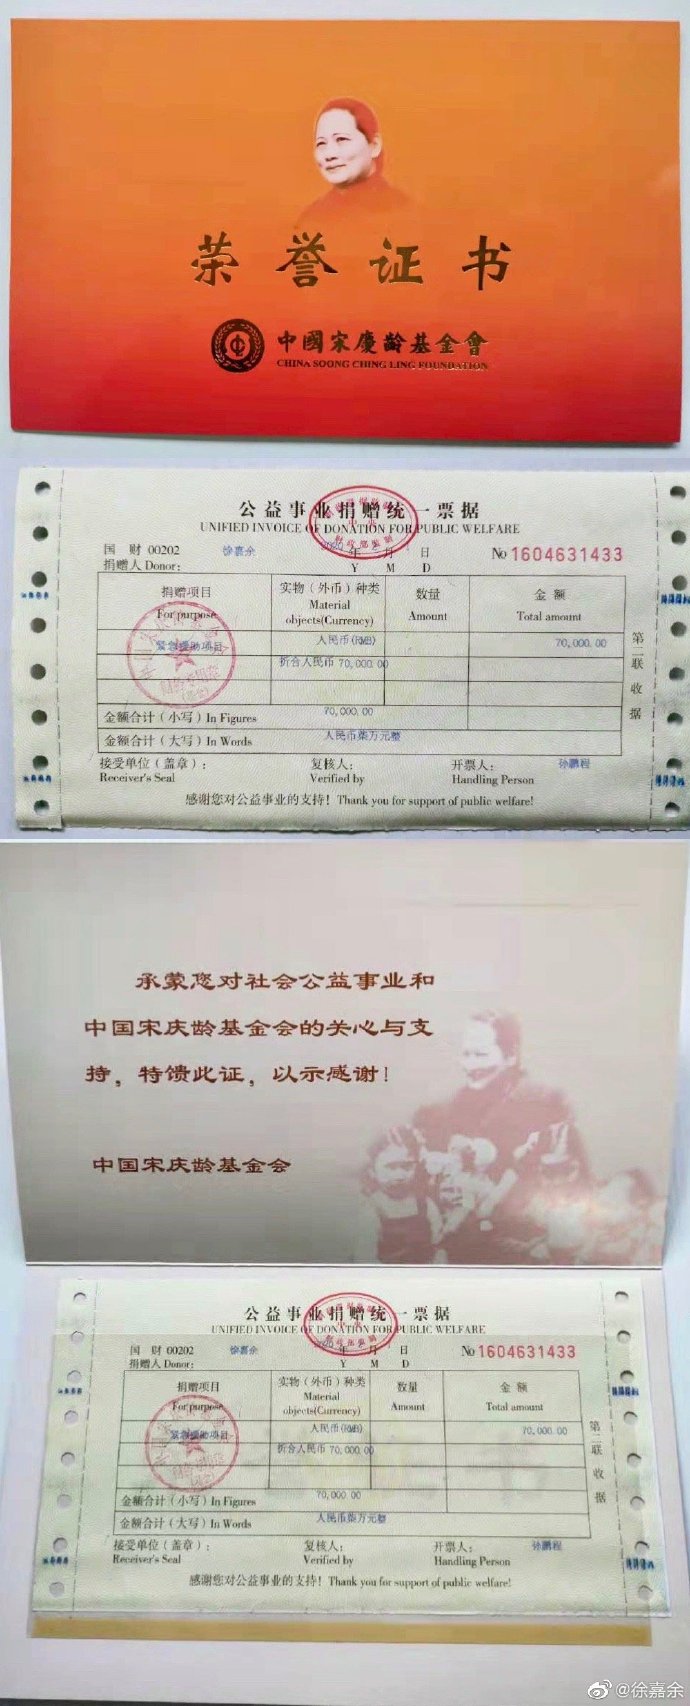 荣誉证书
中國宋慶龄基金會
CHINA SOONG CHING LING FOUNDATION
公益事业捐赠统一票据
UNIFIED INVOICE OF DONATION FOR PUBLIC WELFARE
国 财 00202
徐嘉余
2020 年 月 日
No 1604631433
捐赠人 Donor:
Y M D
捐赠项目 实物（外币）种类 数量 金 额
For purpose Material objects(Currency) Amount Total amount
紧急援助项目 人民币(RMB) 70,000.00
折合人民币 70,000.00
金额合计（小写）In Figures 70,000.00
金额合计（大写）In Words 人民币柒万元整
第二联 收据
接受单位（盖章）: 复核人: 开票人: 孙鹏程
Receiver's Seal Verified by Handling Person
感谢您对公益事业的支持! Thank you for support of public welfare!
承蒙您对社会公益事业和
中国宋庆龄基金会的关心与支
持，特馈此证，以示感谢!
中国宋庆龄基金会
公益事业捐赠统一票据
UNIFIED INVOICE OF DONATION FOR PUBLIC WELFARE
国 财 00202
徐嘉余
2020 年 月 日
No 1604631433
捐赠人 Donor:
Y M D
捐赠项目 实物（外币）种类 数量 金 额
For purpose Material objects(Currency) Amount Total amount
紧急援助项目 人民币(RMB) 70,000.00
折合人民币 70,000.00
金额合计（小写）In Figures 70,000.00
金额合计（大写）In Words 人民币柒万元整
第二联 收据
接受单位（盖章）: 复核人: 开票人: 孙鹏程
Receiver's Seal Verified by Handling Person
感谢您对公益事业的支持! Thank you for support of public welfare!
@徐嘉余